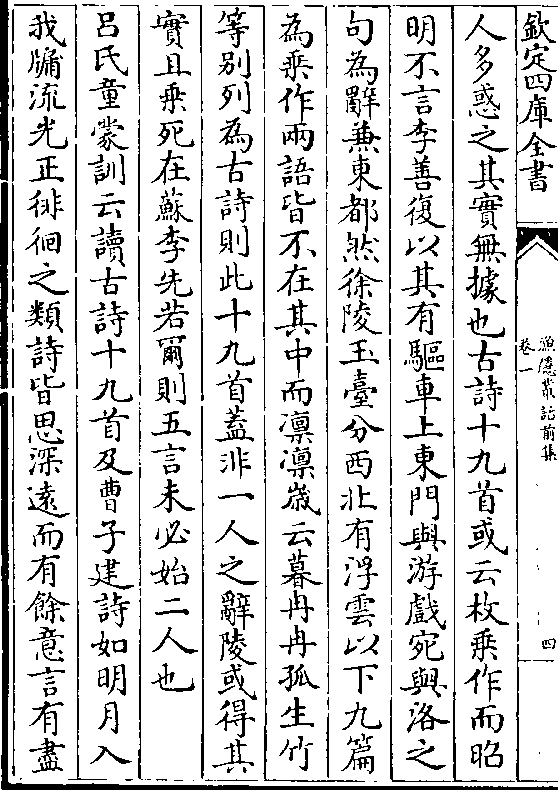 欽定四庫全書
漁隱叢話前集
卷一
四
人多惑之其實無據也古詩十九首或云枚乗作而昭
明不言李善復以其有驅車上東門與游戲宛與洛之
句為辭兼東都然徐陵玉臺分西北有浮雲以下九篇
為乗作兩語皆不在其中而凛凛歳云暮冉冉孤生竹
等别列為古詩則此十九首蓋非一人之辭陵或得其
實且乗死在蘇李先若爾則五言未必始二人也
吕氏童蒙訓云讀古詩十九首及曹子建詩如明月入
我牖流光正徘徊之類詩皆思深逺而有餘意言有盡